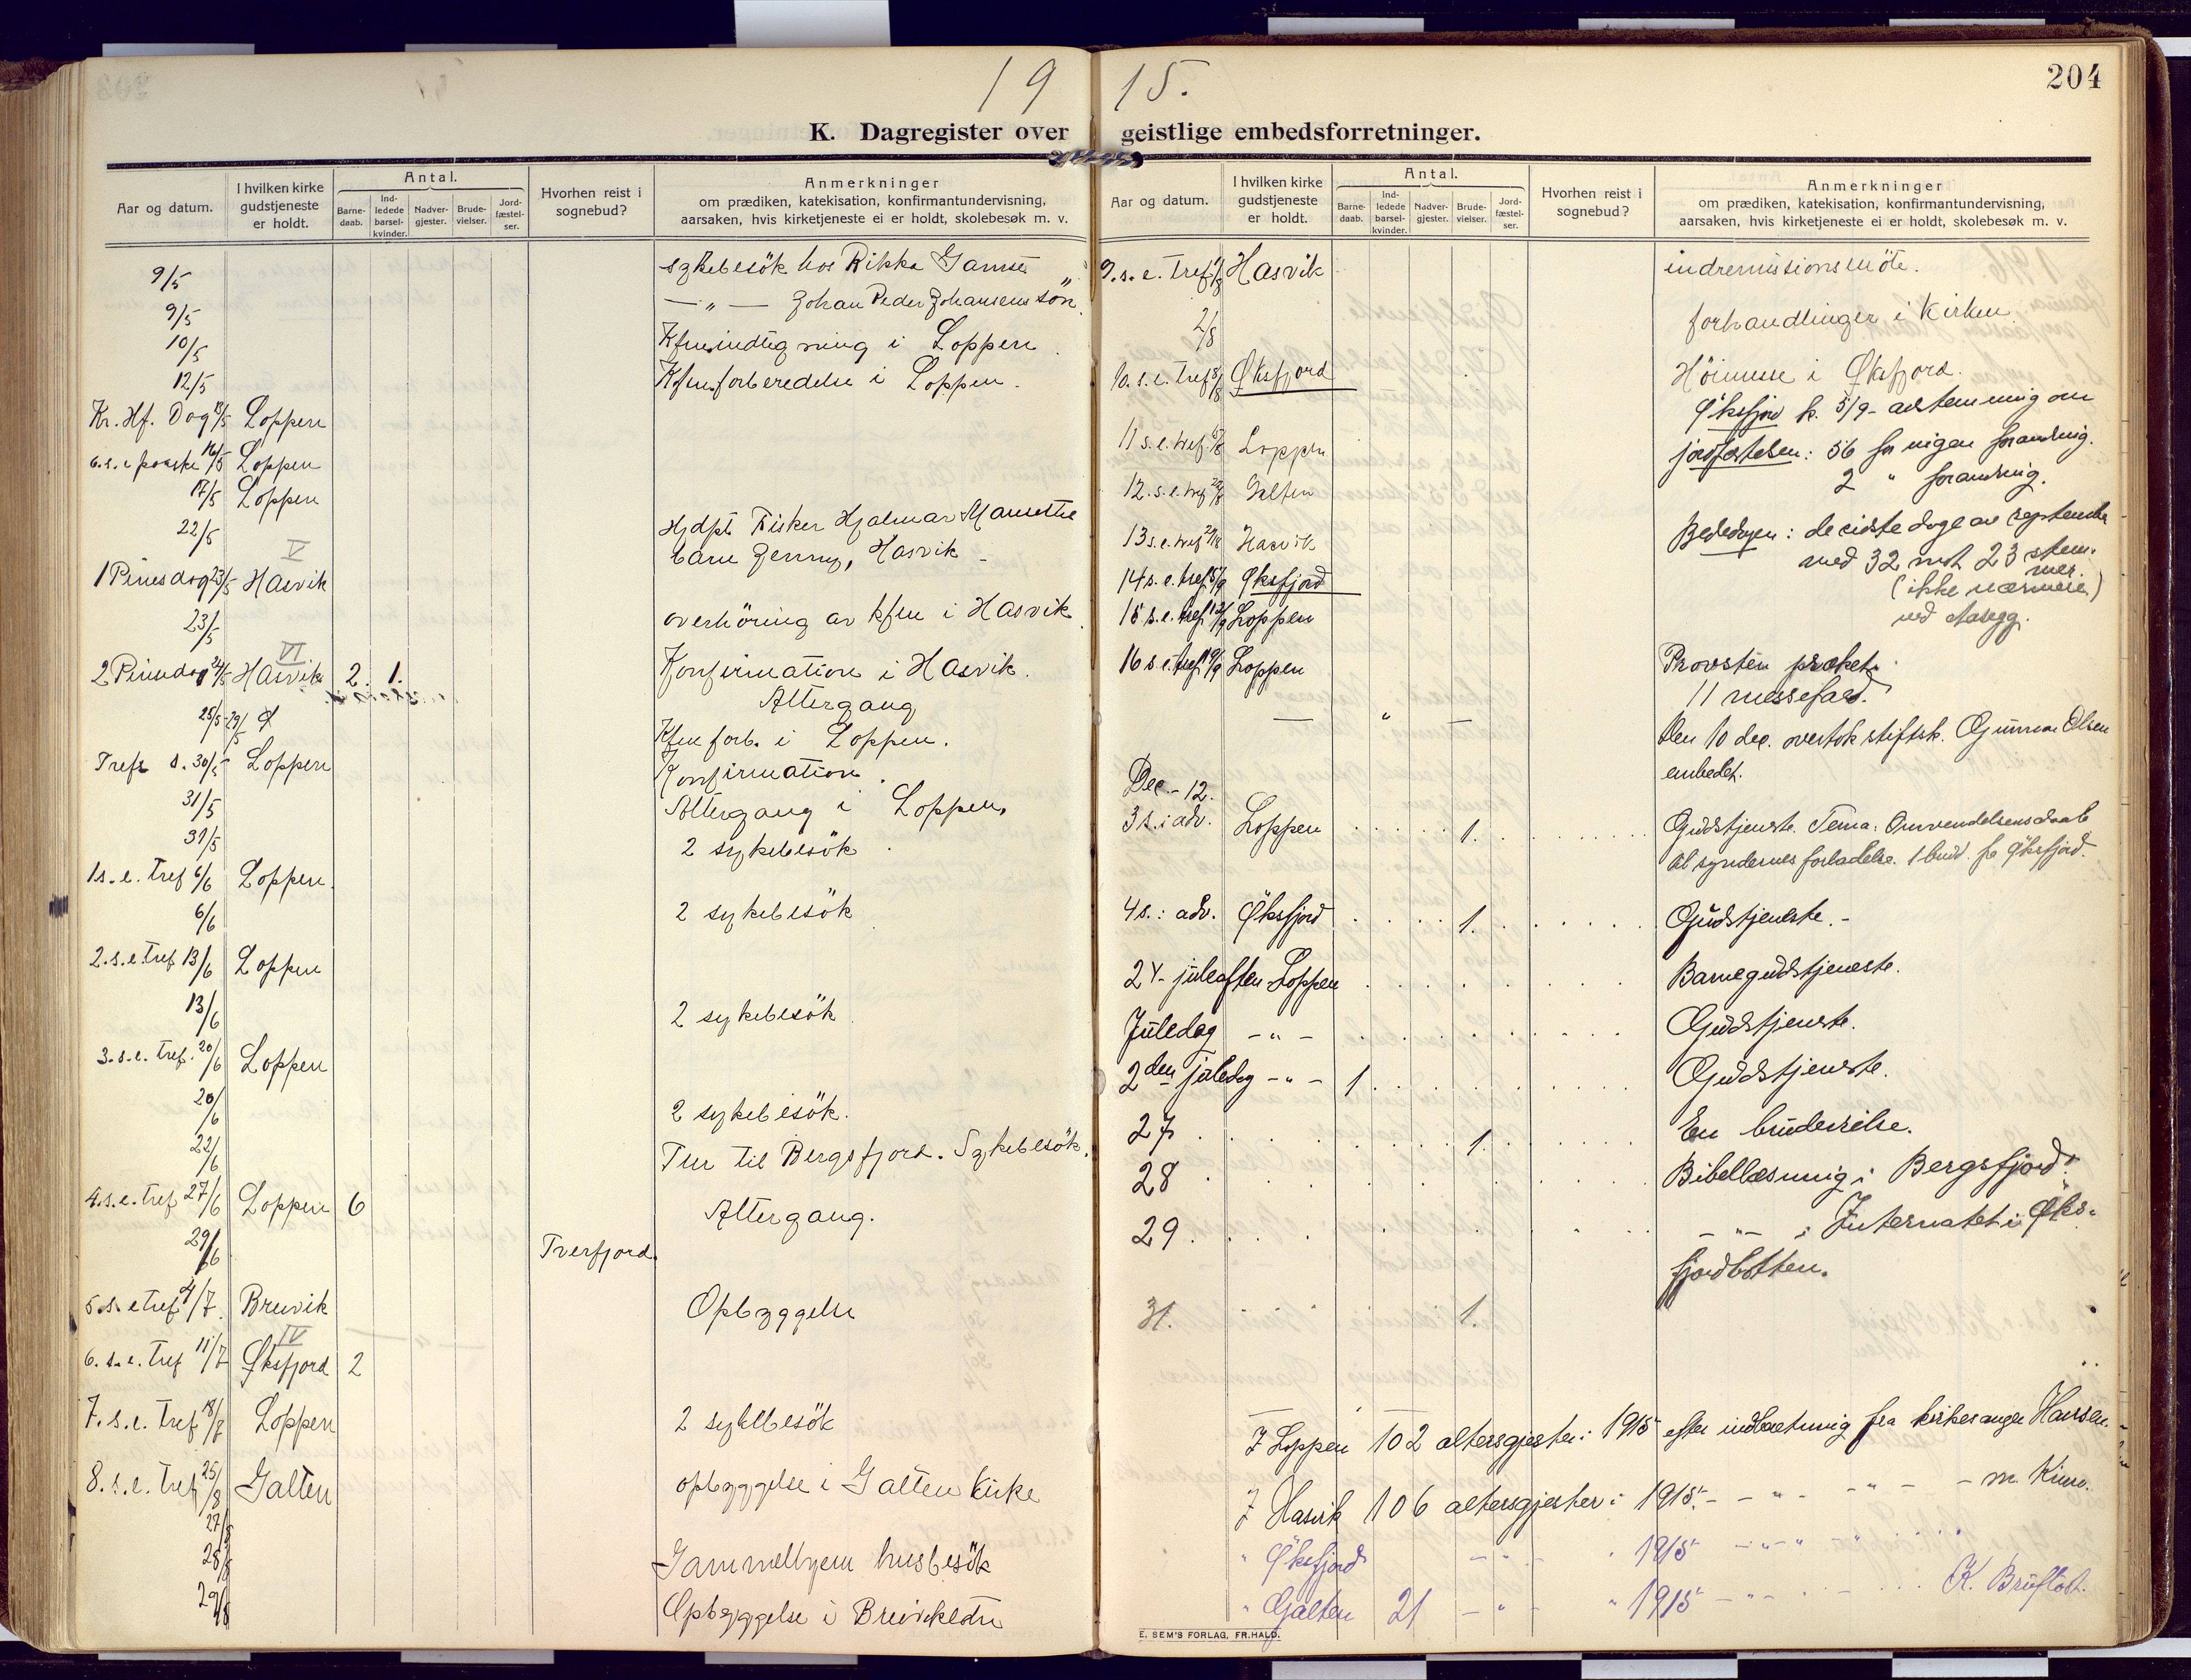 19 15.
204
K. Dagregister over geistlige embedsforretninger.
Aar og datum.
I hvilken kirke gudstjeneste er holdt.
Antal.
Barne-daab.
Ind-ledede barsel-kvinder.
Nadver-gjester.
Brude-vielser.
Jord-fæstel-ser.
Hvorhen reist i sognebud?
Anmerkninger
om prædiken, katekisation, konfirmantundervisning,
aarsaken, hvis kirketjeneste ei er holdt, skolebesøk m. v.
9/5 sykebesök hos Rikka
9/5 — " — Johan Peder Johansens sön
10/5 i Loppen
12/5 Kfm.forberedelse i Loppen.
Kr. Hf. Dag 13/5 Loppen
6. s. e paaske 16/5 Loppen
17/5 Loppen
22/5 Hjdpt Fisker Hjalmar
barn Jenny, Hasvik
V
1 Pinsdag 23/5 Hasvik
23/5 overhöring av kfm i Hasvik
VI
2 Pinsdag 24/5 Hasvik 2. 1. Konfirmation i Hasvik.
Altergang
25/5-29/5 Kfm forb. i Loppen.
Trefs s. 30/5 Loppen Konfirmation.
31/5 Altergang i Loppen.
31/5 2 sykebesök
1 s. e. Tref 6/6 Loppen.
6/6 2 sykebesök
2. s. e. Tref 13/6 Loppen
13/6 2 sykebesök
3. s. e. Tref. 20/6 Loppen
20/6 2 sykebesök.
22/6 Tur til Bergsfjord. Sykebesök.
4. s. e. Tref 27/6 Loppen 6 Altergang.
29/6 Tverfjord.
5. s. e Tref 4/7 Breivik Opbyggelse
IV
6. s. e. Tref 11/7 Øksfjord 2
7. s. e. Tref 18/7 Loppen 2 sykebesök
8. s. e. Tref 25/8 Galten opbyggelse i Galten Kirke
27/8
28/8 Gammelhjem husbesök
29/8 Opbyggelse i
Aar og datum.
I hvilken kirke gudstjeneste er holdt.
Antal.
Barne-daab.
Ind-ledede barsel-kvinder.
Nadver-gjester.
Brude-vielser.
Jord-fæstel-ser.
Hvorhen reist i sognebud?
Anmerkninger
om prædiken, katekisation, konfirmantundervisning,
aarsaken, hvis kirketjeneste ei er holdt, skolebesøk m. v.
9. s. e. Tref 1/8 Hasvik indremissionsmöte.
2/8 forhandlinger i Kirken
10. s. e. Tref 8/8 Øksfjord Høimesse i Øksfjord.
Øksfjord k. 5/9 - avstemning om
11 s. e. tref. Loppen jordfæstelsen: 56 for ingen forandring.
2 " forandring.
12. s. e. tref Galten
13 s. e. tref Hasvik Bededagen: de sidste dage av september
med 32 mot 23 stem-
mer.
14 s. e. tref 5/9 Øksfjord (ikke nærmere)
15 s. e. tref 12/9 Loppen
16 s e. tref 19/9 Loppen Provsten præket.
11 messefald.
— " — Den 10 dec. overtok stiftsk. Gunnar Olsen
embedet.
Dec. - 12.
3 s. i adv. Loppen 1. Gudstjeneste. Tema: Omvendelsens daab
til syndernes forladelse. 1 brudv. fra Øksfjord.
4 s. i adv. Øksfjord 1. Gudstjeneste. -
24 - juleaften Loppen Barnegudstjeneste.
Juledag - " - Gudstjeneste.
2den juledag - " - 1 Gudstjeneste.
27 1. En brudevielse.
28 Bibellæsning i Bergsfjord.
29 - " - i Internatet i Øks-
fjordbotten.
31. 1.
I Loppen 102 altersgjester i 1915 efter indberetning fra kirkesanger Hansen.
I Hasvik 106 altersgjester i 1915. - " - - " - - m.
" Øksfjord - " - " 1915 - " - "
" Galten 21 - " - " 1915 - " - K.
E. SEM'S FORLAG, FR.HALD.